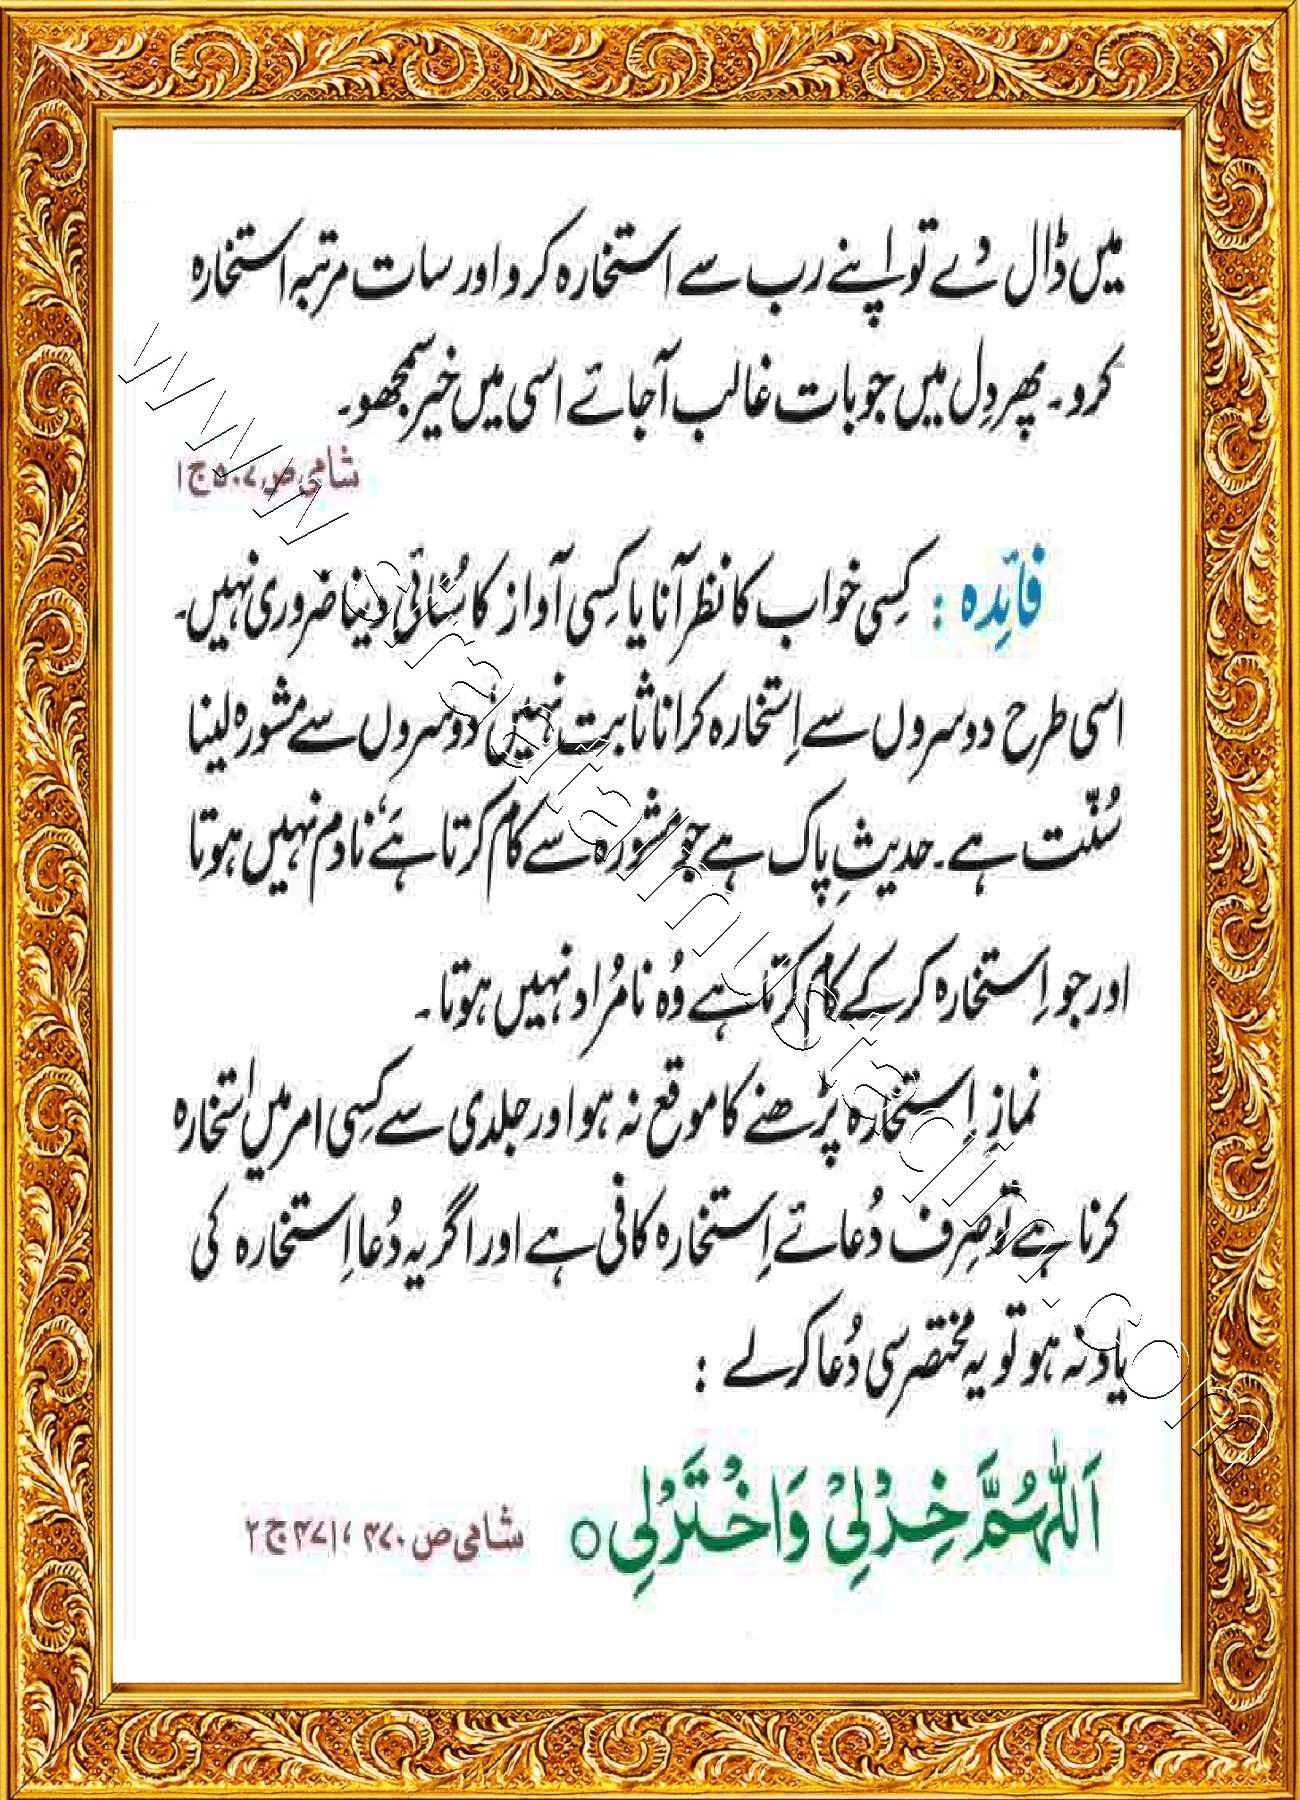 میں ڈال دے تو اپنے رب سے استخارہ کرو اور سات مرتبہ استخارہ
کرو۔ پھر دِل میں جو بات غالب آجائے اسی میں خیر سمجھو۔
شامی ص ۵۰۷ ج ۱
فائِدہ : کِسی خواب کا نظر آنا یا کِسی آواز کا سُنائی دینا ضروری نہیں۔
اسی طرح دوسروں سے اِستخارہ کرانا ثابت نہیں، دوسروں سے مشورہ لینا
سُنّت ہے۔ حدیثِ پاک ہے جو مشورہ سے کام کرتا ہے، نادم نہیں ہوتا
اور جو اِستخارہ کر کے کام کرتا ہے وُہ نامُراد نہیں ہوتا۔
نمازِ اِستخارہ پڑھنے کا موقع نہ ہو اور جلدی سے کِسی امر میں اِستخارہ
کرنا ہے تو صِرف دُعائے اِستخارہ کافی ہے اور اگر یہ دُعا اِستخارہ کی
یاد نہ ہو تو یہ مختصر سی دُعا کر لے :
اَللّٰهُمَّ خِرْلِیْ وَاخْتَرْلِی ○ شامی ص ۴۷۰، ۴۷۱ ج ۲